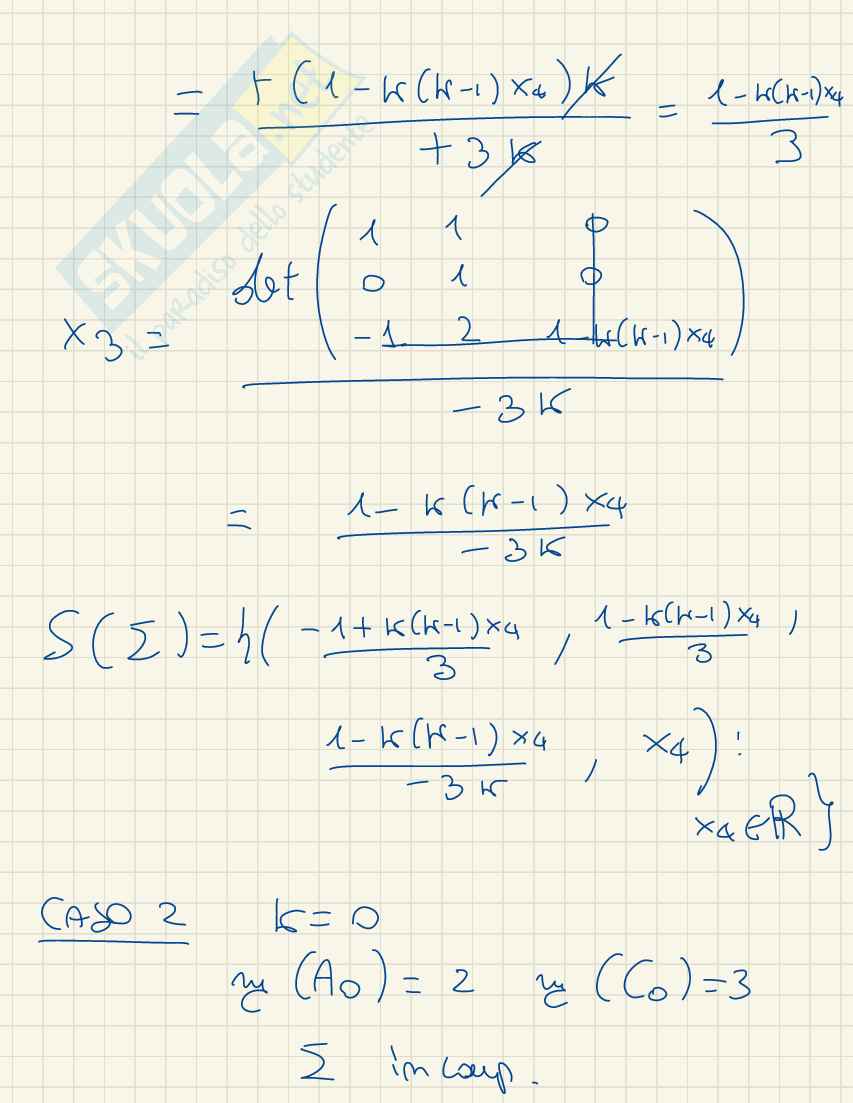 = +(1-k(k-1)x4)k / +3k = 1-k(k-1)x4 / 3
x3 = det ( 1 1 0
0 1 0
-1 2 1-k(k-1)x4 ) / -3k
= 1-k(k-1)x4 / -3k
S(Σ)={( -1+k(k-1)x4 / 3 , 1-k(k-1)x4 / 3 ,
1-k(k-1)x4 / -3k , x4 ) :
x4∈ℝ}
CASO 2 k=0
rg(A0)=2 rg(C0)=3
Σ incomp.
SKUOLA.net
il paradiso dello studente